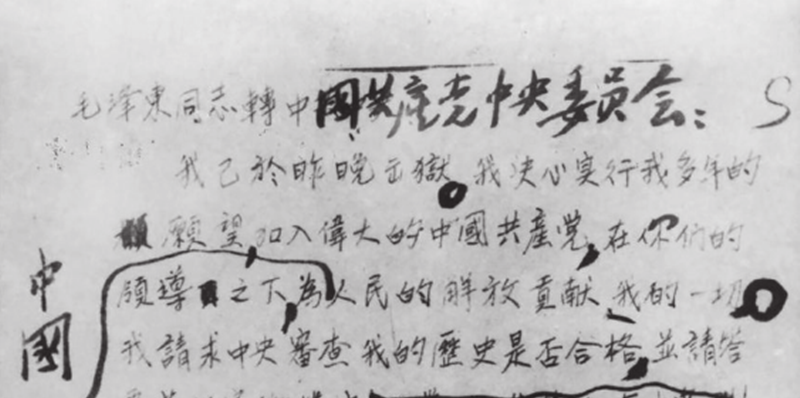 毛澤東同志轉中國共產党中央委員会：
我已於昨晚出獄。我决心实行我多年的
願望加入偉大的中國共產党，在你们的
領導之下為人民的解放貢献我的一切。
我請求中央審查我的歷史是否合格，並請答
中國